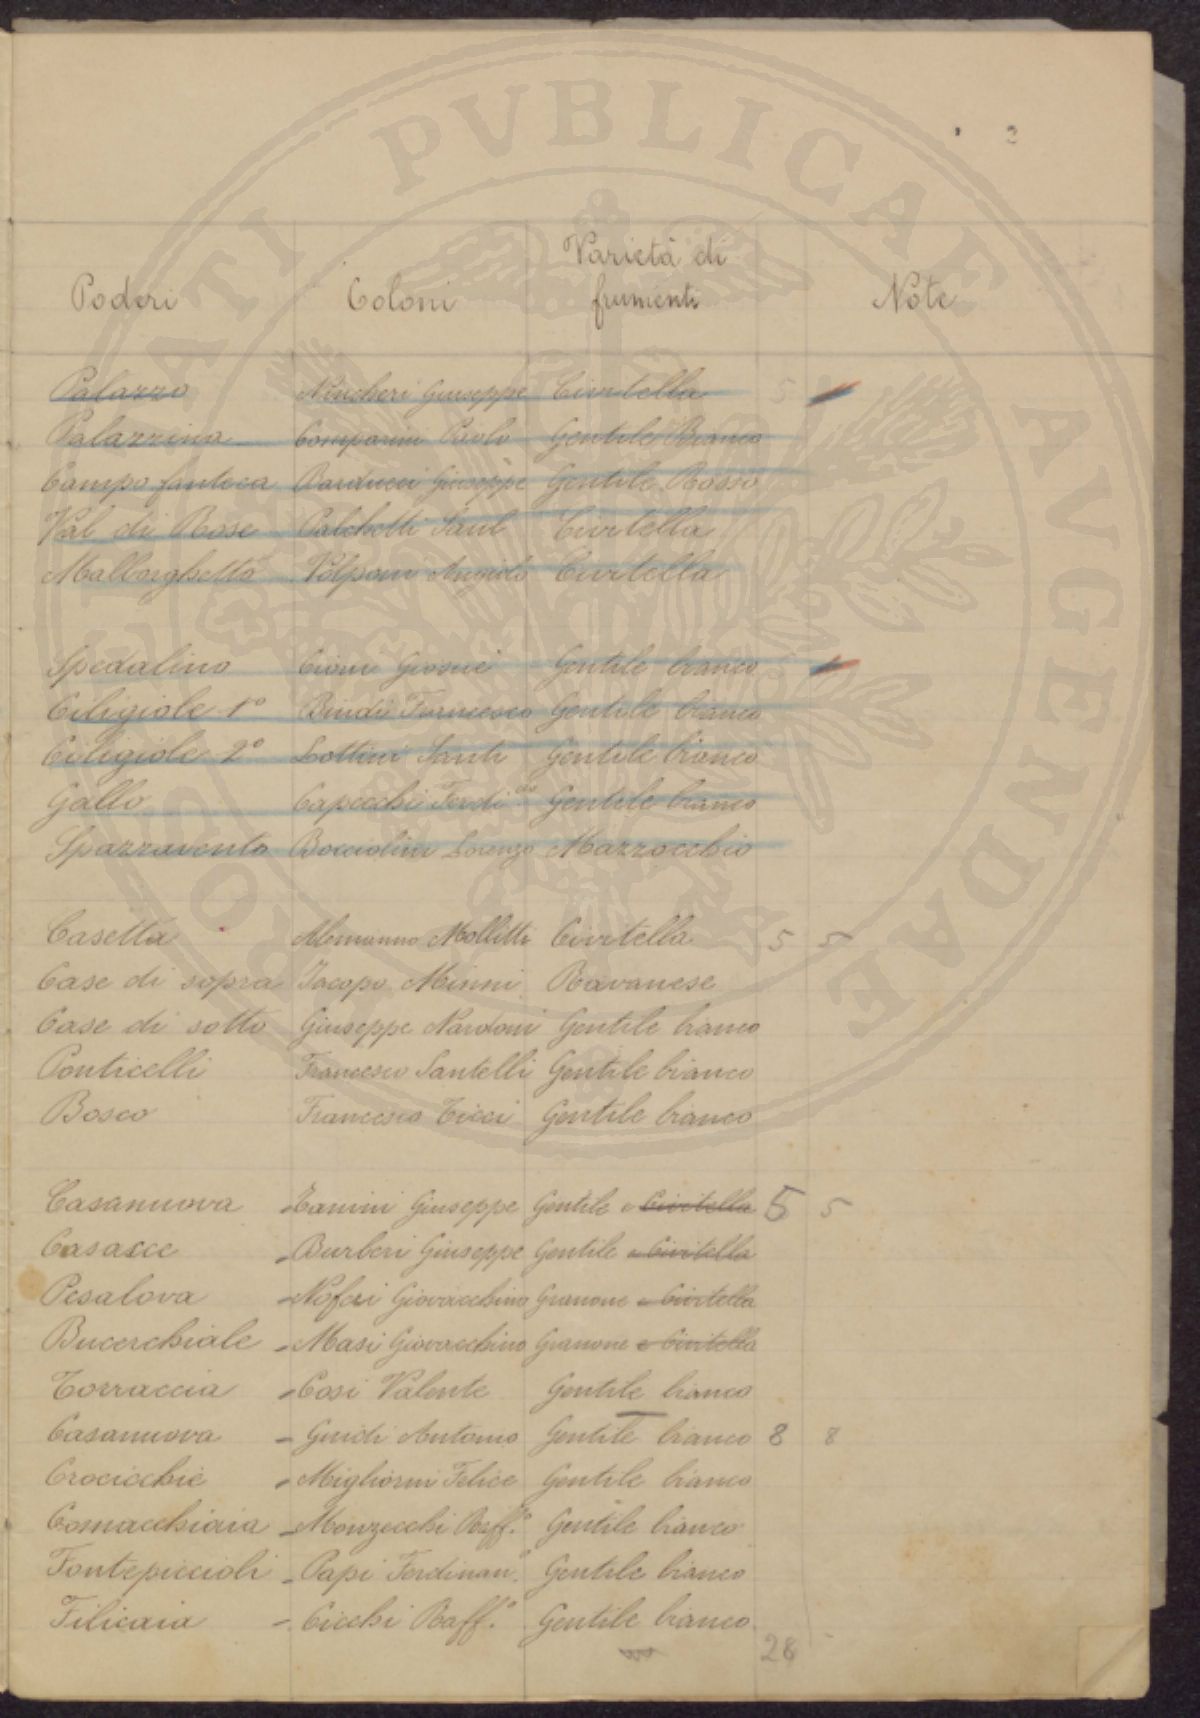 PROSPERITATI PVBLICAE AVGENDAE
2
Poderi Coloni Varietà di frumenti Note
Palazzo Nincheri Giuseppe Civitella 5
Palazzina Comparini Paolo Gentile Bianco
Campo fantoca Barducci Giuseppe Gentile Rosso
Val di Rose Palchetti Saul Civitella
Malborghetto Volponi Angiolo Civitella
Spedalino Cioni Giosuè Gentile bianco
Ciligiole 1º Bindi Francesco Gentile bianco
Ciligiole 2º Lottini Santi Gentile bianco
Gallo Capecchi Ferdi.do Gentile bianco
Spazzavento Bocciolini Lorenzo Mazzocchio
Casetta Alemanno Mollitti Civitella 5 5
Case di sopra Jacopo Minni Ravanese
Case di sotto Giuseppe Nardoni Gentile bianco
Ponticelli Francesco Santelli Gentile bianco
Bosco Francesco Ticci Gentile bianco
Casanuova - Tanini Giuseppe Gentile e Civitella 5 5
Casacce - Burberi Giuseppe Gentile e Civitella
Pesalova - Noferi Giovacchino Granone e Civitella
Bucerchiale - Masi Giovacchino Granone e Civitella
Torraccia - Cosi Valente Gentile bianco
Casanuova - Guidi Antonio Gentile bianco 8 8
Crocicchie - Migliorini Felice Gentile bianco
Comacchiaia - Monzecchi Raff.º Gentile bianco
Fontepiccioli - Papi Ferdinan.º Gentile bianco
Filicaia - Cicchi Raff.º Gentile bianco
28